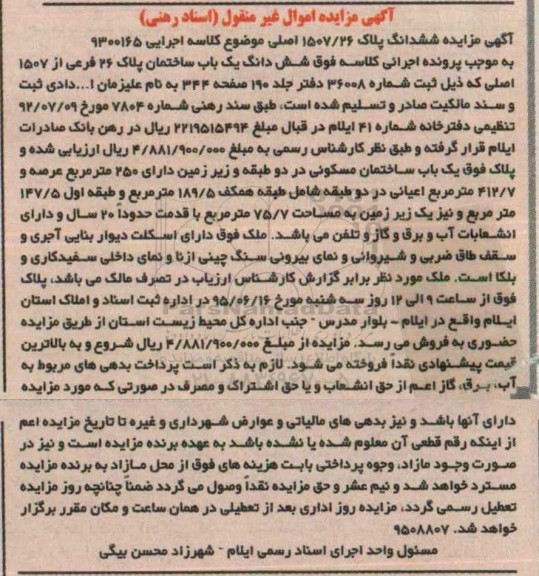 آگهی مزایده اموال غیر منقول (اسناد رهنی)
آگهی مزایده ششدانگ پلاک ۱۵۰۷/۲۶ اصلی موضوع کلاسه اجرایی ۹۳۰۰۱۶۵
به موجب پرونده اجرائی کلاسه فوق شش دانگ یک باب ساختمان پلاک ۲۶ فرعی از ۱۵۰۷
اصلی که ذیل ثبت شماره ۳۶۰۰۸ دفتر جلد ۱۹۰ صفحه ۳۴۴ به نام علیزمان ا...دادی ثبت
و سند مالکیت صادر و تسلیم شده است، طبق سند رهنی شماره ۷۸۰۴ مورخ ۹۲/۰۷/۰۹
تنظیمی دفترخانه شماره ۴۱ ایلام در قبال مبلغ ۲۲۱۹۵۱۵۴۹۴ ریال در رهن بانک صادرات
ایلام قرار گرفته و طبق نظر کارشناس رسمی به مبلغ ۴/۸۸۱/۹۰۰/۰۰۰ ریال ارزیابی شده و
پلاک فوق یک باب ساختمان مسکونی در دو طبقه و زیر زمین دارای ۲۵۰ مترمربع عرصه و
۴۱۲/۷ مترمربع اعیانی در دو طبقه شامل طبقه همکف ۱۸۹/۵ مترمربع و طبقه اول ۱۴۷/۵
متر مربع و نیز یک زیر زمین به مساحت ۷۵/۷ مترمربع با قدمت حدوداً ۲۰ سال و دارای
انشعابات آب و برق و گاز و تلفن می باشد. ملک فوق دارای اسکلت دیوار بنایی آجری و
سقف طاق ضربی و شیروانی و نمای بیرونی سنگ چینی ازنا و نمای داخلی سفیدکاری و
بلکا است. ملک مورد نظر برابر گزارش کارشناس ارزیاب در تصرف مالک می باشد، پلاک
فوق از ساعت ۹ الی ۱۲ روز سه شنبه مورخ ۹۵/۰۶/۱۶ در اداره ثبت اسناد و املاک استان
ایلام واقع در ایلام - بلوار مدرس - جنب اداره کل محیط زیست استان از طریق مزایده
حضوری به فروش می رسد. مزایده از مبلغ ۴/۸۸۱/۹۰۰/۰۰۰ ریال شروع و به بالاترین
قیمت پیشنهادی نقداً فروخته می شود. لازم به ذکر است پرداخت بدهی های مربوط به
آب، برق، گاز اعم از حق انشعاب و یا حق اشتراک و مصرف در صورتی که مورد مزایده
دارای آنها باشد و نیز بدهی های مالیاتی و عوارض شهرداری و غیره تا تاریخ مزایده اعم
از اینکه رقم قطعی آن معلوم شده یا نشده باشد به عهده برنده مزایده است و نیز در
صورت وجود مازاد، وجوه پرداختی بابت هزینه های فوق از محل مازاد به برنده مزایده
مسترد خواهد شد و نیم عشر و حق مزایده نقداً وصول می گردد ضمناً چنانچه روز مزایده
تعطیل رسمی گردد، مزایده روز اداری بعد از تعطیلی در همان ساعت و مکان مقرر برگزار
خواهد شد. ۹۵۰۸۸۰۷
مسئول واحد اجرای اسناد رسمی ایلام - شهرزاد محسن بیگی